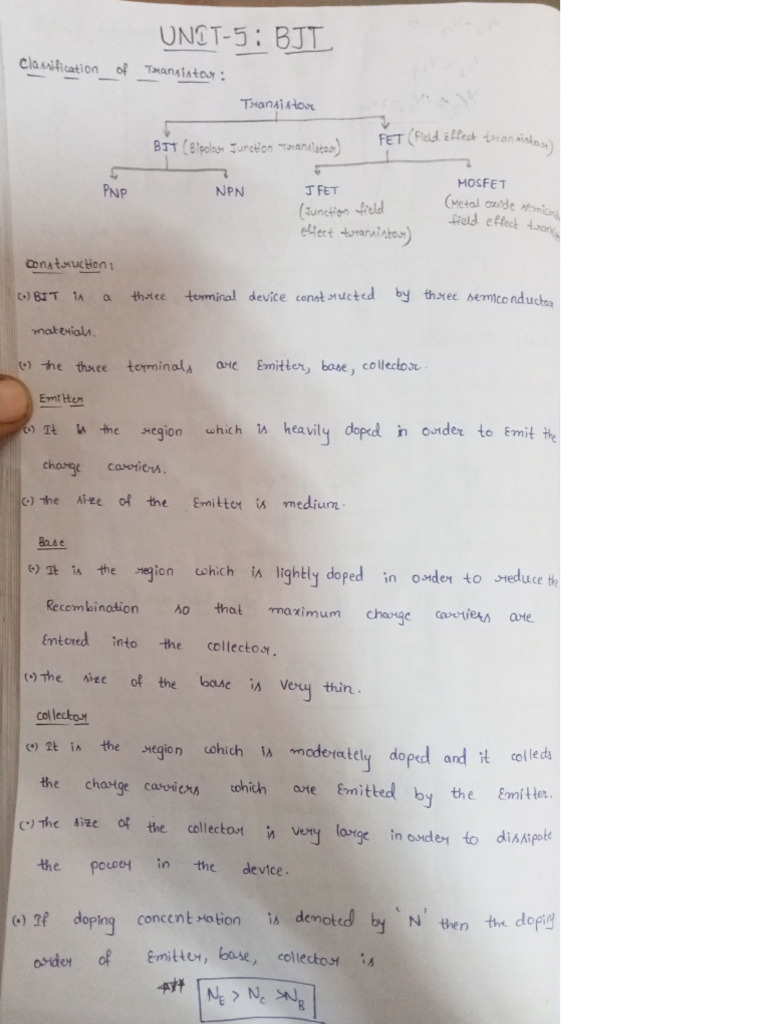 UNIT-5: BJT
Classification of Transistor:
Transistor
BJT (Bipolar Junction Transistor) FET (Field Effect transistor)
PNP NPN JFET MOSFET
(Junction field (Metal oxide
effect transistor) field effect
Construction:
(•) BJT is a three terminal device constructed by three semiconductor
materials.
(•) The three terminals are Emitter, base, collector.
Emitter
(•) It is the region which is heavily doped in order to Emit the
charge carriers.
(•) The size of the Emitter is medium.
Base
(•) It is the region which is lightly doped in order to reduce the
Recombination so that maximum charge carriers are
Entered into the collector.
(•) The size of the base is very thin.
collector
(•) It is the region which is moderately doped and it collects
the charge carriers which are Emitted by the Emitter.
(•) The size of the collector is very large in order to dissipate
the power in the device.
(•) If doping concentration is denoted by 'N' then the doping
order of Emitter, base, collector is
N_E > N_C > N_B